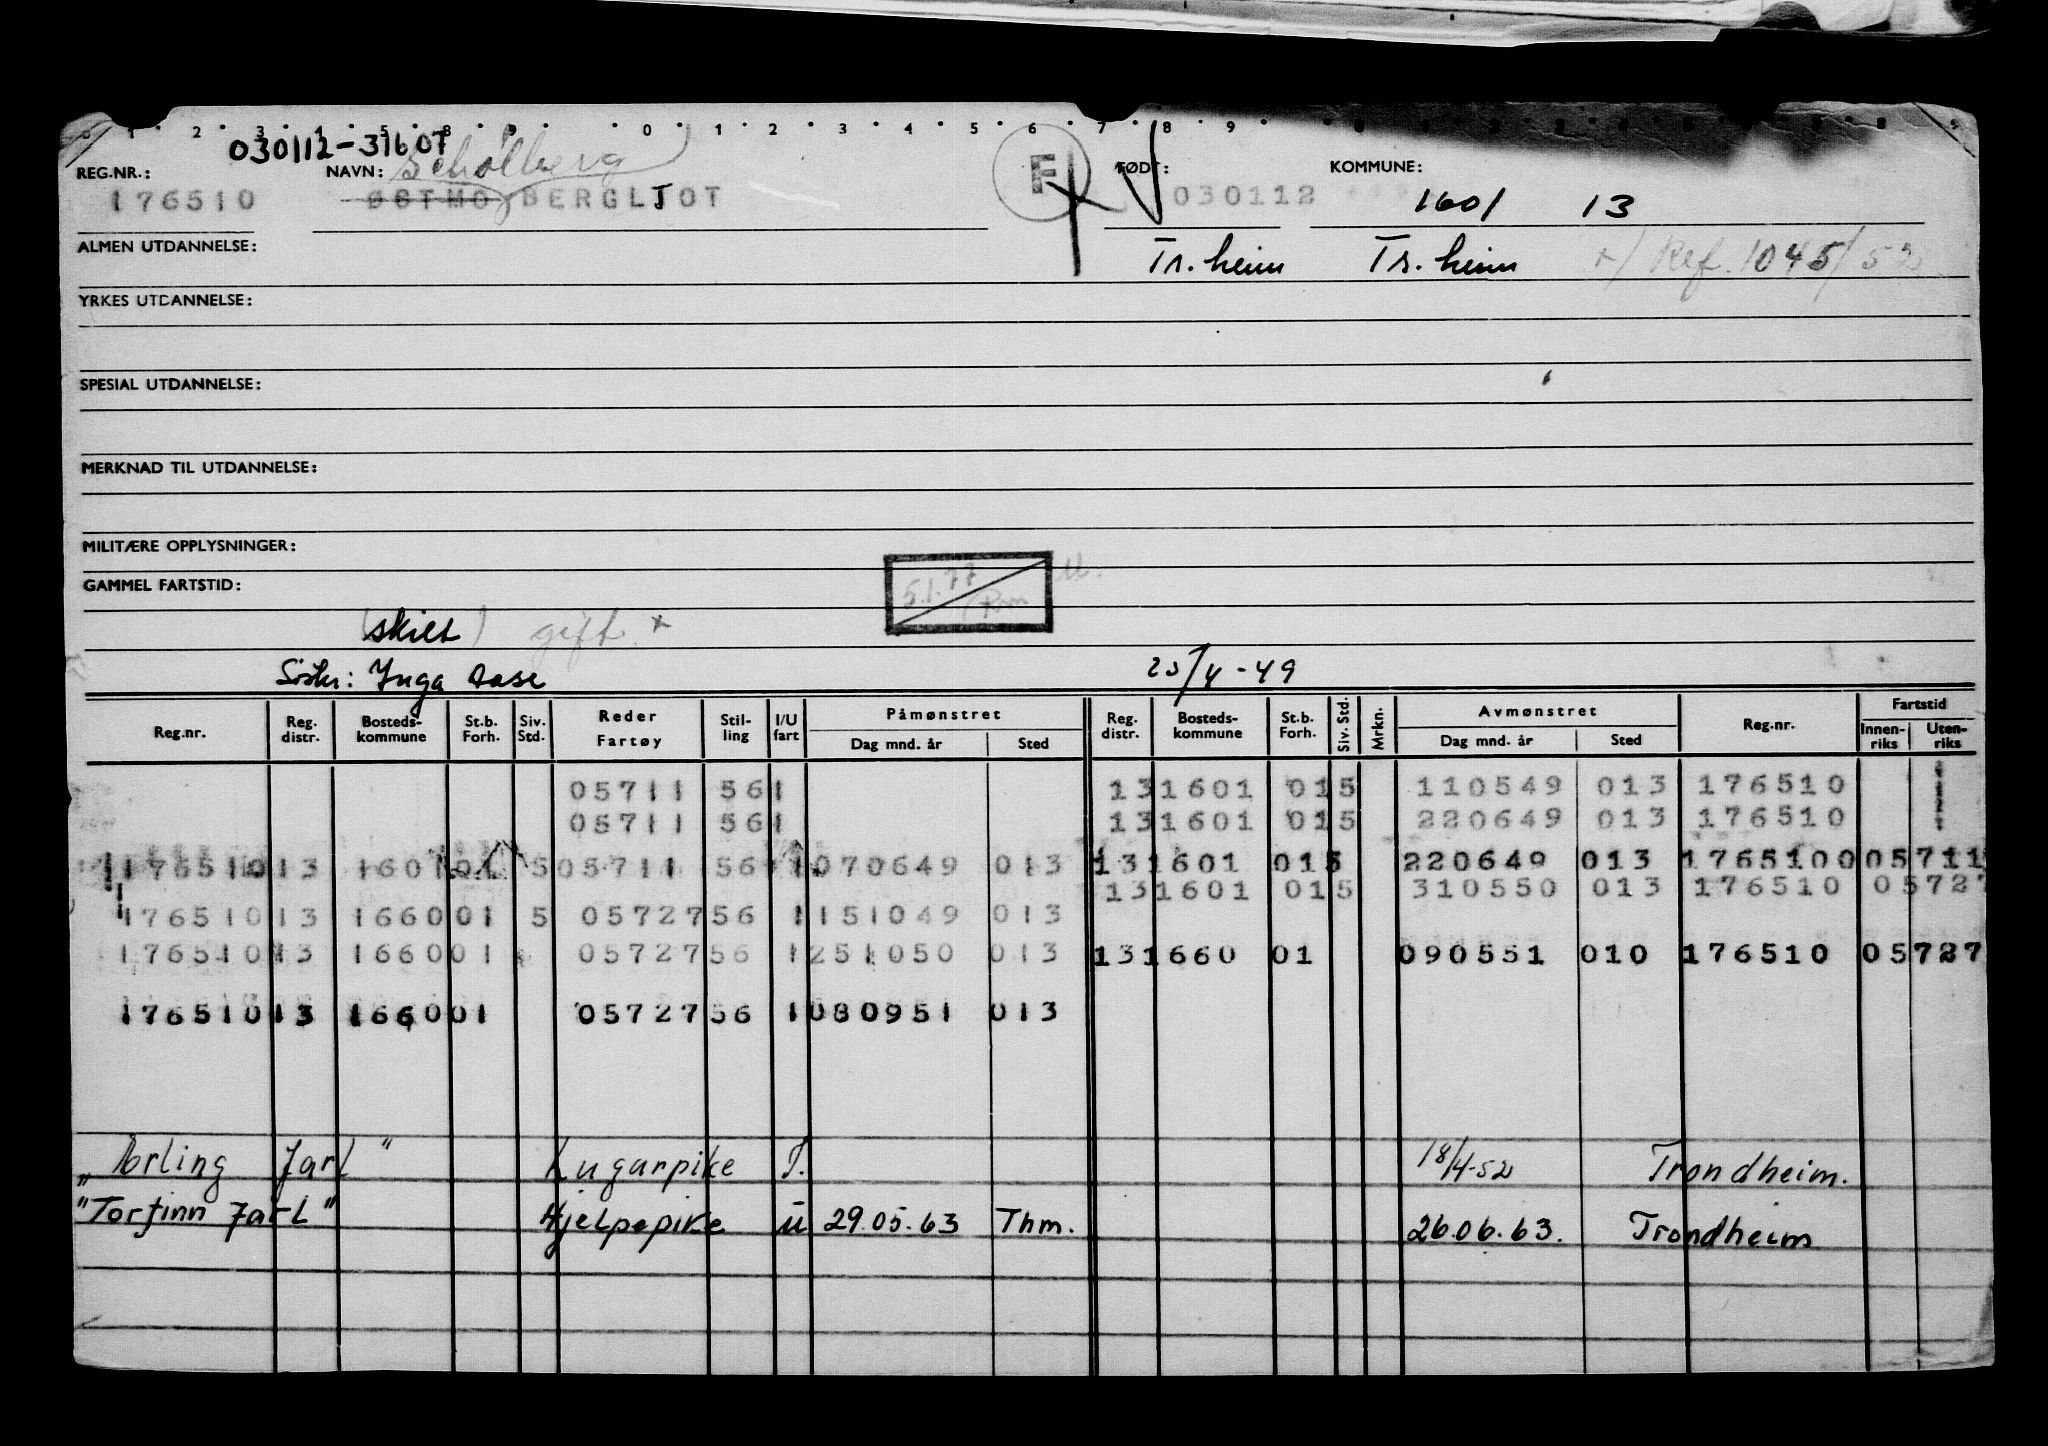 0 1 2 3 4 5 8 9 0 1 2 3 4 5 6 7 8 9
030112-31607
REG.NR.: NAVN: Schølberg F FØDT: KOMMUNE:
176510 ØSTMO BERGLJOT 030112 1601 13
ALMEN UTDANNELSE: Tr.heim Tr.heim +/ Ref. 1045/52
YRKES UTDANNELSE:
SPESIAL UTDANNELSE:
MERKNAD TIL UTDANNELSE:
MILITÆRE OPPLYSNINGER:
GAMMEL FARTSTID: 5.1.77
(skilt) gift +
Søster: Inga Aase 25/4-49
Reg.nr. Reg. distr. Bosteds-kommune St.b. Forh. Siv. Std. Reder Fartøy Stil-ling I/U fart Påmønstret Dag mnd. år Sted Reg. distr. Bosteds-kommune St.b. Forh. Siv. Std. Mrkn. Avmønstret Dag mnd. år Sted Reg.nr. Fartstid Innen-riks Uten-riks
05711 561 131601 015 110549 013 176510
05711 561 131601 015 220649 013 176510
176510 13 1601 01 5 05711 56 1 070649 013 131601 015 220649 013 176510 005711
131601 015 310550 013 176510 05727
176510 13 1660 01 5 05727 56 1 151049 013
176510 13 1660 01 05727 56 1 251050 013 131660 01 090551 010 176510 05727
176510 13 1660 01 05727 56 1 080951 013
„Erling Jarl" Lugarpike I. 18/4-52 Trondheim.
"Torfinn Jarl" Hjelpepike U 29.05.63 Thm. 26.06.63. Trondheim